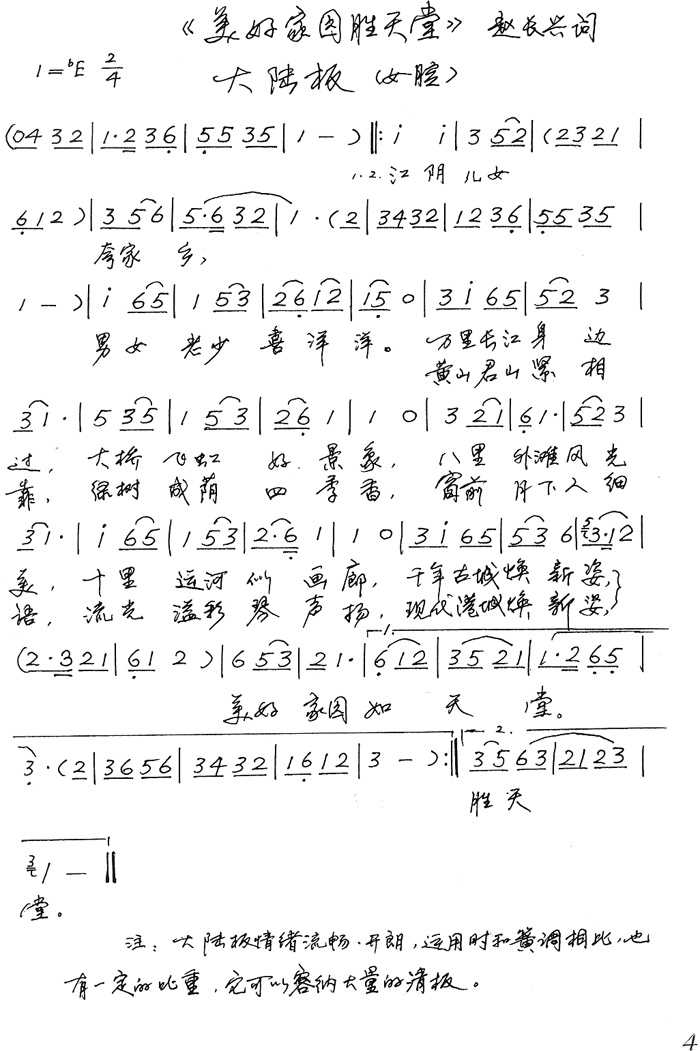 《美好家园胜天堂》 赵长兴词
1=♭E 2/4
大陆板（女腔）
(04 32|1·2 36|55 35|1 — )‖: i i|3 52|(23 21|
1.2.江 阴 儿女
61 2)|3 56|5·6 32|1 ·(2|34 32|12 36|55 35|
夸家 乡，
1 — )|i 65|1 53|26 12|15 0|3i 65|52 3|
男 女 老少 喜 洋 洋。 万里长江 身 边
黄山君山 紧 相
31·|5 35|1 53|26 1|1 0|3 21|61·|52 3|
过， 大桥 飞虹 好 景 象， 八里 外滩 风 光
靠， 绿树 成荫 四 季 香， 窗前 月下 人 细
31·|i 65|1 53|2·6 1|1 0|3i 65|53 6|3·12|
美， 十里 运河 似 画 廊， 千年古城 焕 新 姿，}
语， 流光 溢彩 琴 声 扬， 现代港城 焕 新 姿，}
(2·3 21|61 2)|6 53|21·|1. 612|35 21|1·2 65|
美好 家园 如 天 堂。
3·(2|36 56|34 32|16 12|3 — ):‖2. 35 63|21 23|
胜 天
1 — ‖
堂。
注：大陆板情绪流畅·开朗，运用时和簧调相比，也
有一定的比重，它可以容纳大量的清板。
4